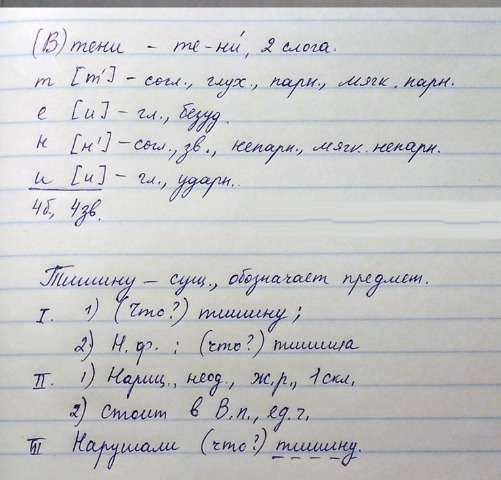 (В) тени – те-ни́, 2 слога.
т [т'] – согл., глух., парн., мягк. парн.
е [и] – гл., безуд.
н [н'] – согл., зв., непарн., мягк. непарн.
и [и] – гл., ударн.
4б., 4зв.
Тишину – сущ., обозначает предмет.
I. 1) (Что?) тишину;
2) Н.ф.: (что?) тишина
II. 1) Нариц., неод., ж.р., 1 скл.
2) стоит в В.п., ед.ч.
III Нарушали (что?) тишину.